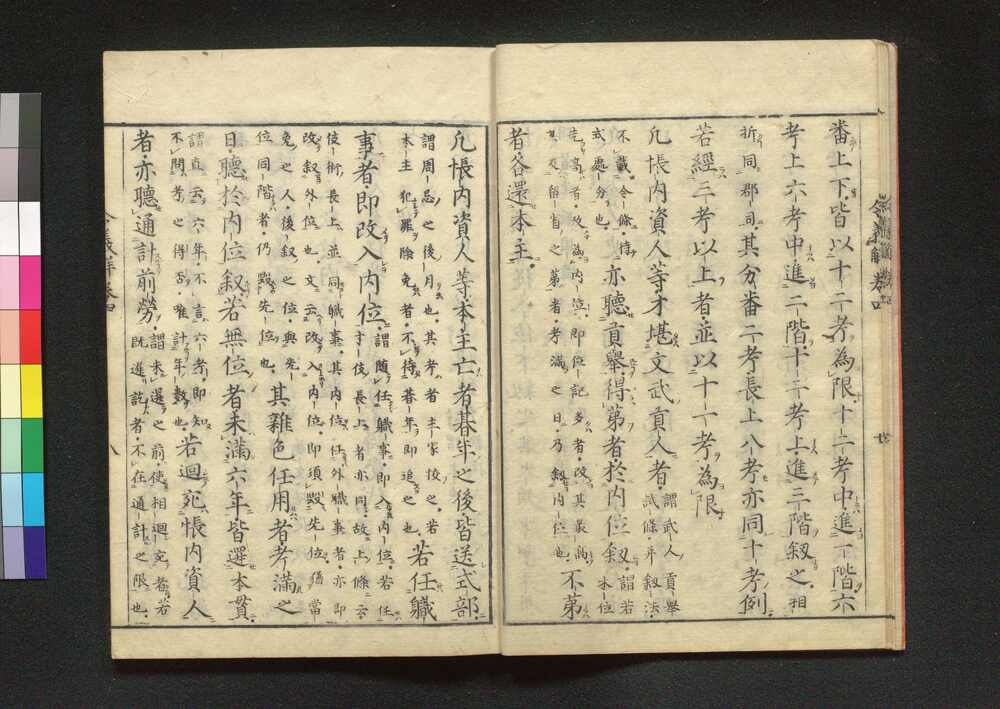 番上下皆以十二考為限十二考中進一階六
考上六考中進二階十二考上進三階叙之相
折同郡司其分番二考長上八考亦同十考例
若經二考以上者並以十一考為限
凢帳内資人等才堪文武貢人者謂武人貢舉武條并叙法
不載令條待式處分也亦聽貢舉得第者於内位叙謂若本位
不第
者各還本主
凢帳内資人等本主亡者朞年之後皆送式部
謂周忌之後月也其考者主家校之若本主犯罪除免者不待朞年即追之也若任職
事者即改入内位謂随任職事即入内位若任
使衙長上並同職事其内位任外職事者亦即改叙外位也文云改入内位即須毀先位猶當
免之人後叙之位與先位同階者仍毀先位也其雜色任用者考滿之
日聽於内位叙若無位者未滿六年皆還本貫
謂直云六年不言六考即知不問考之得否唯計年數也若迴充帳内資人
者亦聽通計前勞謂未還之前使相迴充者若既進訖者不在通計之限也
令義解卷四
八